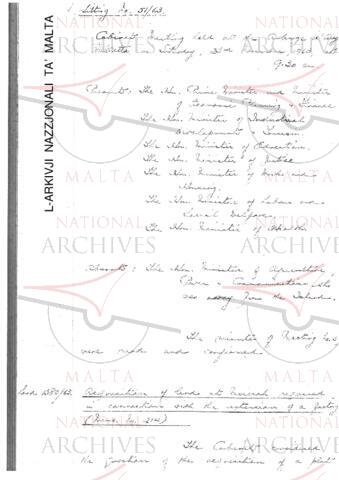 1. Sitting No. 51/63.
Cabinet Meeting held at the
9.30 am.
Present: The Hon. Prime Minister and Minister
of Economic Planning & Finance
The Hon. Minister of Industrial
Development & Tourism.
The Hon. Minister of Education.
The Hon. Minister of Justice
The Hon. Minister of Works and
Housing.
The Hon. Minister of Labour and
Social Welfare.
The Hon. Minister of Health
Absent: The Hon. Minister of Agriculture,
Power & Communications who
was away from the Island.
The minutes of Meeting
were read and confirmed.
Requisition of lands at required
in connection with the extension of a factory
The Cabinet considered
the question of the requisition of a plot
L-ARKIVJI NAZZJONALI TA' MALTA
NATIONAL
ARCHIVES
MALTA